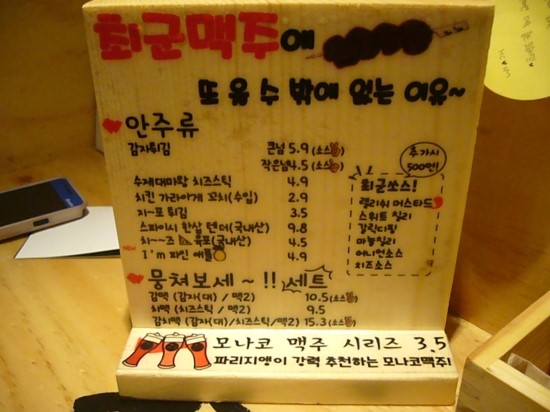 최군맥주에
뜨 울 수 밖에 없는 이유~
안주류
감자튀김 큰넘 5.9 (소스
작은넘 4.5 (소스
수제대마왕 치즈스틱 4.9
치킨 가라아게 꼬치(수입) 2.9
지~포 튀김 3.5
스파이시 한살 텐더(국내산) 9.8
치~~즈 육포(국내산) 4.5
NEW I'm 파인 애플 4.9
추가시
500원!
최군쏘스!
랠리쉬 머스타드
스위트 칠리
갈릭디핑
마늘칠리
어니언소스
치즈소스
뭉쳐보세~!! 세트
감맥 (감자(대) / 맥2) 10.5 (소스
치맥 (치즈스틱 / 맥2) 9.5
감치맥 (감자(대)/치즈스틱/맥2) 15.3 (소스
모나코 맥주 시리즈 3.5
파리지앵이 강력 추천하는 모나코맥주!